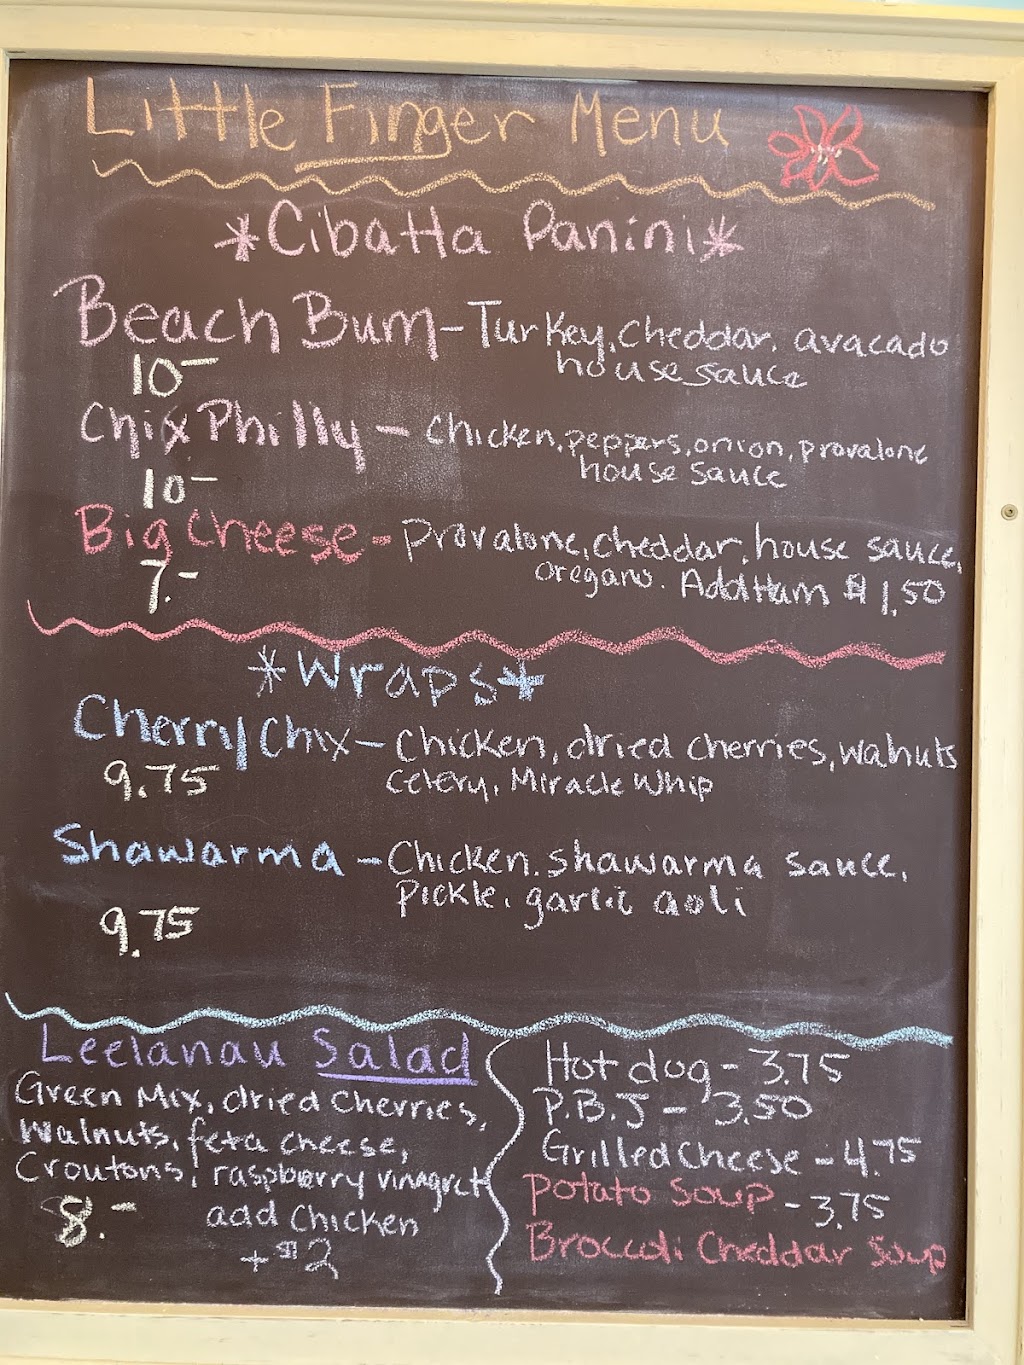 Little Finger Menu
*Cibatta Panini*
Beach Bum - Turkey, cheddar, avacado
house sauce
10-
Chix Philly - Chicken, peppers, onion, provalone
house sauce
10-
Big Cheese - Provalone, cheddar, house sauce,
oregano. Add Ham $1.50
7.-
*Wraps*
Cherry Chix - Chicken, dried cherries, walnuts
celery, Miracle Whip
9.75
Shawarma - Chicken, shawarma sauce,
pickle, garlic aoli
9.75
Leelanau Salad
Green Mix, dried cherries,
Walnuts, feta cheese,
Croutons, raspberry vinagret
8.- add chicken
+ $2
Hot dog - 3.75
P.B.J - 3.50
Grilled Cheese - 4.75
Potato Soup - 3.75
Broccoli Cheddar Soup